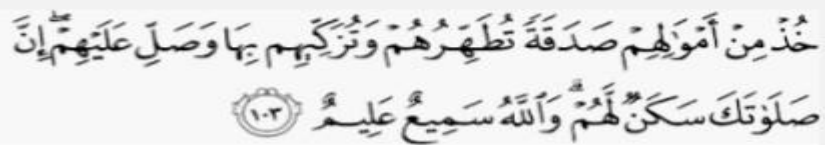 خُذۡ مِنۡ أَمۡوَٰلِهِمۡ صَدَقَةٗ تُطَهِّرُهُمۡ وَتُزَكِّيهِم بِهَا وَصَلِّ عَلَيۡهِمۡۖ إِنَّ
صَلَوٰتَكَ سَكَنٞ لَّهُمۡۗ وَٱللَّهُ سَمِيعٌ عَلِيمٌ ١٠٣